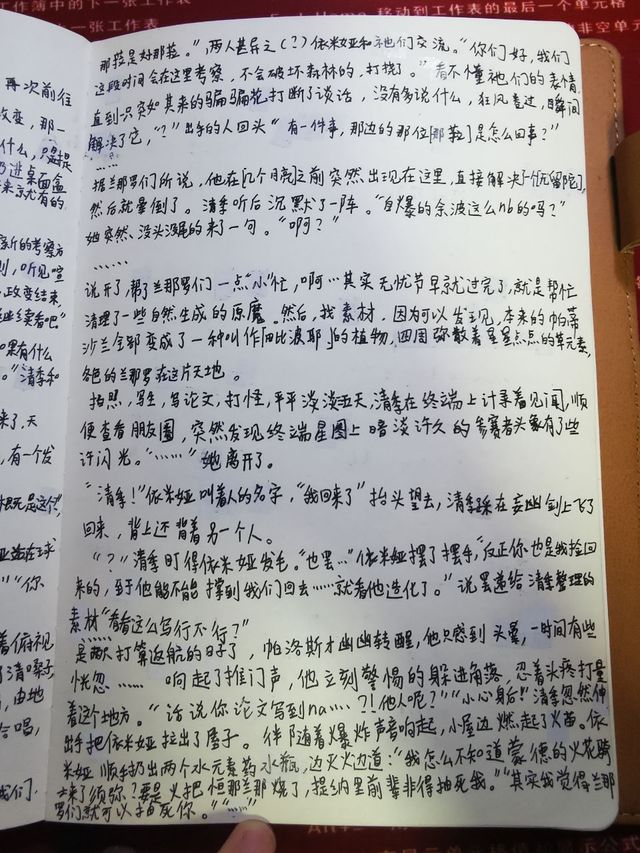 工作薄中的下一张工作表
移动到工作表的最后一个单元格
再次前往
改变，那一
什么，只是
扔进桌面盒
来就有的
新的考察方
别，听见喧
政变结束
继续看吧”
果有什么
。”清季和
来了，天
，有一个发
”“你
着俯视
了清嗓子
由地
合唱，
我们.
那菈是好那菈。”，两人甚异之（？）依米娅和祂们交流。“你们好，我们
这段时间会在这里考察，不会破坏森林的，打扰了。”看不懂祂们的表情
直到一只突如其来的骗骗花打断了谈话，没有多说什么，狂风卷过，瞬间
解决了它，“？”出手的人回头“有一件事，那边的那位[那菈]是怎么回事？”
……
据兰那罗们所说，他在[几个月亮]之前突然出现在这里，直接解决了一个[无留陀]，
然后就晕倒了。清季听后沉默了一阵。“自爆的余波这么nb的吗？”
她突然、没头没尾的来了一句。“啊？”
……
说开了，帮了兰那罗们一点“小”忙，啊…其实无忧节早就过完了，就是帮忙
清理了一些自然生成的原魔。然后，找素材，因为可以发现，本来的帕蒂
沙兰全部变成了一种叫作[田比波耶]的植物，四周弥散着星星点点的草元素，
各色的兰那罗在这片天地。
拍照，写生，写论文，打怪，平平淡淡五天，清季在终端上计录着见闻，顺
便查看朋友圈，突然发现终端星图上暗淡许久的参赛者头象有了些
许闪光。“……”她离开了。
“清季！”依米娅叫着人的名字，“我回来了”抬头望去，清季踩在妄幽剑上飞了
回来，背上还背着另一个人。
“？”清季盯得依米娅发毛。“也罢…”依米娅摆了摆手，“反正你也是我捡回
来的，至于他能不能撑到我们回去……就看他造化了。”说罢递给清季整理的
素材“看看这么写行不行？”
……
是两只打算返航的日子了，帕洛斯才幽幽转醒，他只感到头晕，一时间有些
恍惚……响起了推门声，他立刻警惕的躲进角落，忍着头疼打量
着这个地方。“话说你论文写到na……？！他人呢？”“小心身后！”清季忽然伸
出手把依米娅拉出了屋子。伴随着爆炸声音响起，小屋边燃起了火苗。依
米娅顺手扔出两个水元素药水瓶，边灭火边道：“我怎么不知道蒙德的火花骑
士来了须弥？要是火把桓那兰那烧了，提纳里前辈非得抽死我。”“其实我觉得兰那
罗们就可以抽死你。”“……”